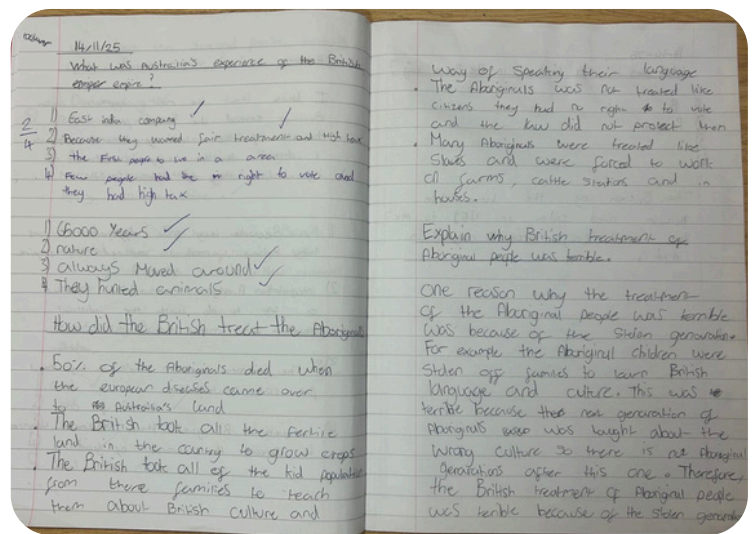 14/11/25
What was Australia's experience of the British
empire?
2/4
1) East india company
2) Because they wanted fair treatment and High tax
3) the First people to live in a area
4) Few people had the right to vote and
they had high tax
1) 66000 Years
2) nature
3) always Moved around
4) They hunted animals
How did the British treat the Aboriginal
• 50% of the Aboriginals died when
the european diseases came over
to Austraisa's land
• The British took all the fertile
land in the country to grow crops
• The British took all of the kid population
from there families to teach
them about British culture and
way of speaking their language
• The Aboriginals was not treated like
citizens they had no right to vote
and the law did not protect them
• Many Aboriginals were treated like
Slaves and were forced to work
on farms, cattle stations and in
houses.
Explain why British treatment of
Aboriginal people was terrible.
One reason why the treatment
of the Aboriginal people was terrible
was because of the Stolen genaration.
For example the Aboriginal children were
Stolen off families to learn British
language and culture. This was
terrible because the next genaration of
Aboriginals was taught about the
wrong culture so there is not Aboriginal
genarations after this one. Therefore,
the British treatment of Aboriginal people
was terrible because of the Stolen